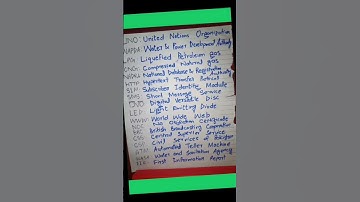 UNO: United Nations Organization
WAPDA: Water & Power Development Authority
LPG: Liquefied Petroleum gas
CNG: Compressed Natural gas
NADRA: National Database & Registration Authority
HTTP: Hypertext Transfer Protocol
SIM: Subscriber Identity Module
SMS: Short Message Service
DVD: Digital Versatile Disc
LED: Light Emitting Diode
WWW: World Wide Web
No Objection Certificate
BBC: British Broadcasting Corporation
CSS: Central Superior Service
CSP: Civil Services of Pakistan
ATM: Automated Teller Machine
WASA: Water and Sanitation Agency
FIR: First Information Report